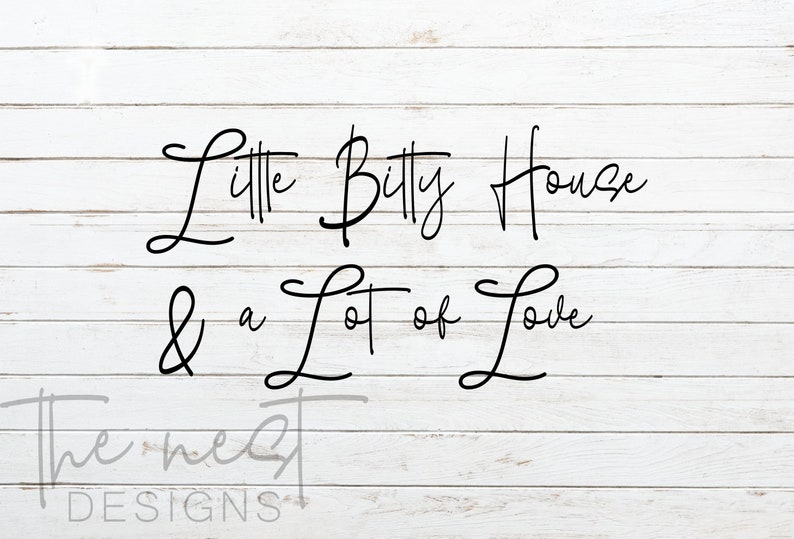 Little Bitty House
& a Lot of Love
the nest
DESIGNS